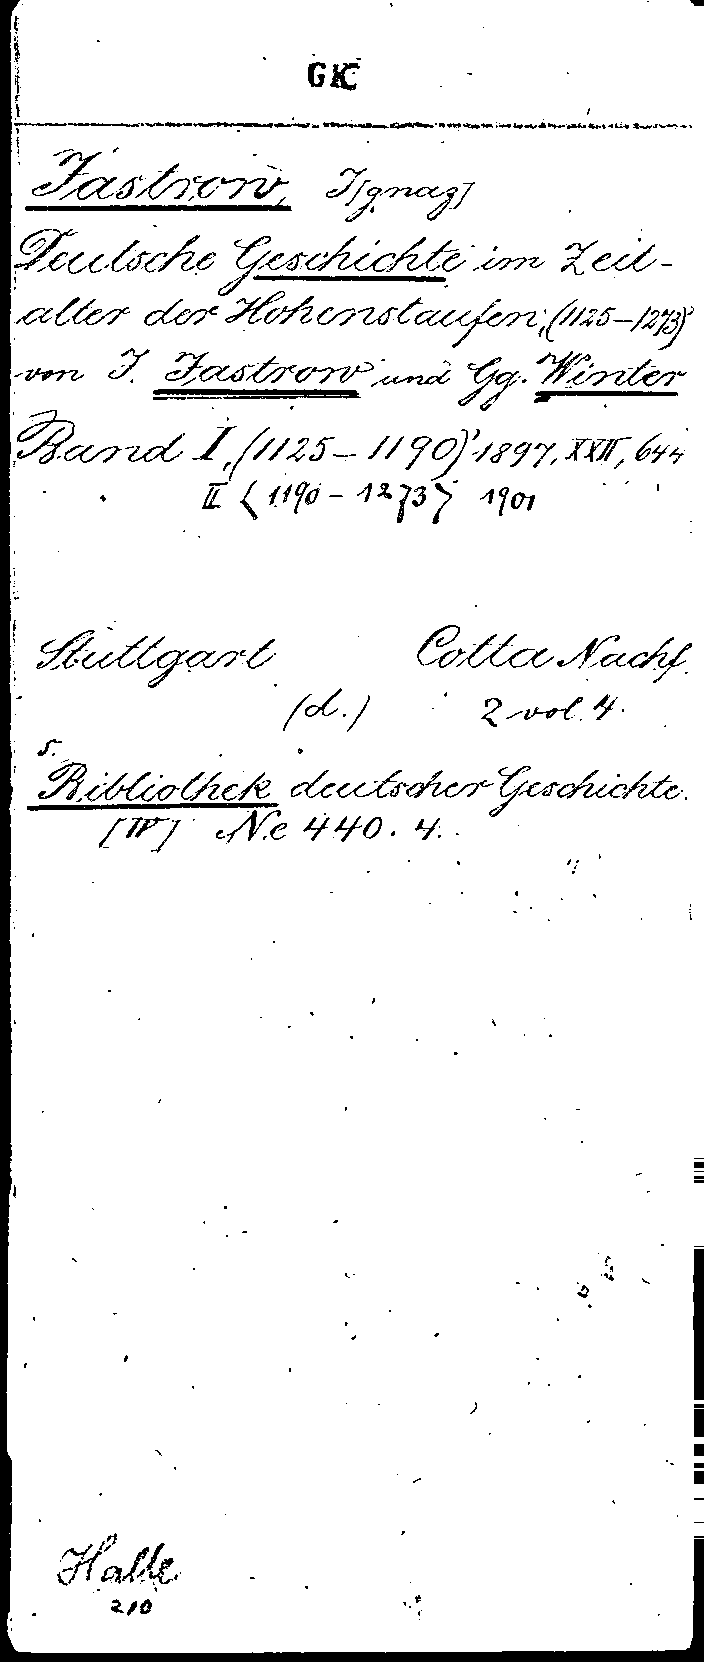 GK
Jastrow, I[gnaz]
Deutsche Geschichte im Zeit-
alter der Hohenstaufen, (1125–1273)
von I. Jastrow und Gg. Winter
Band I, (1125–1190) 1897, XXII, 644
II <1190–1273> 1901
Stuttgart Cotta Nachf.
(d.) 2 vol. 4.
s.
Bibliothek deutscher Geschichte.
[IV] Ne 440. 4.
Halle
210